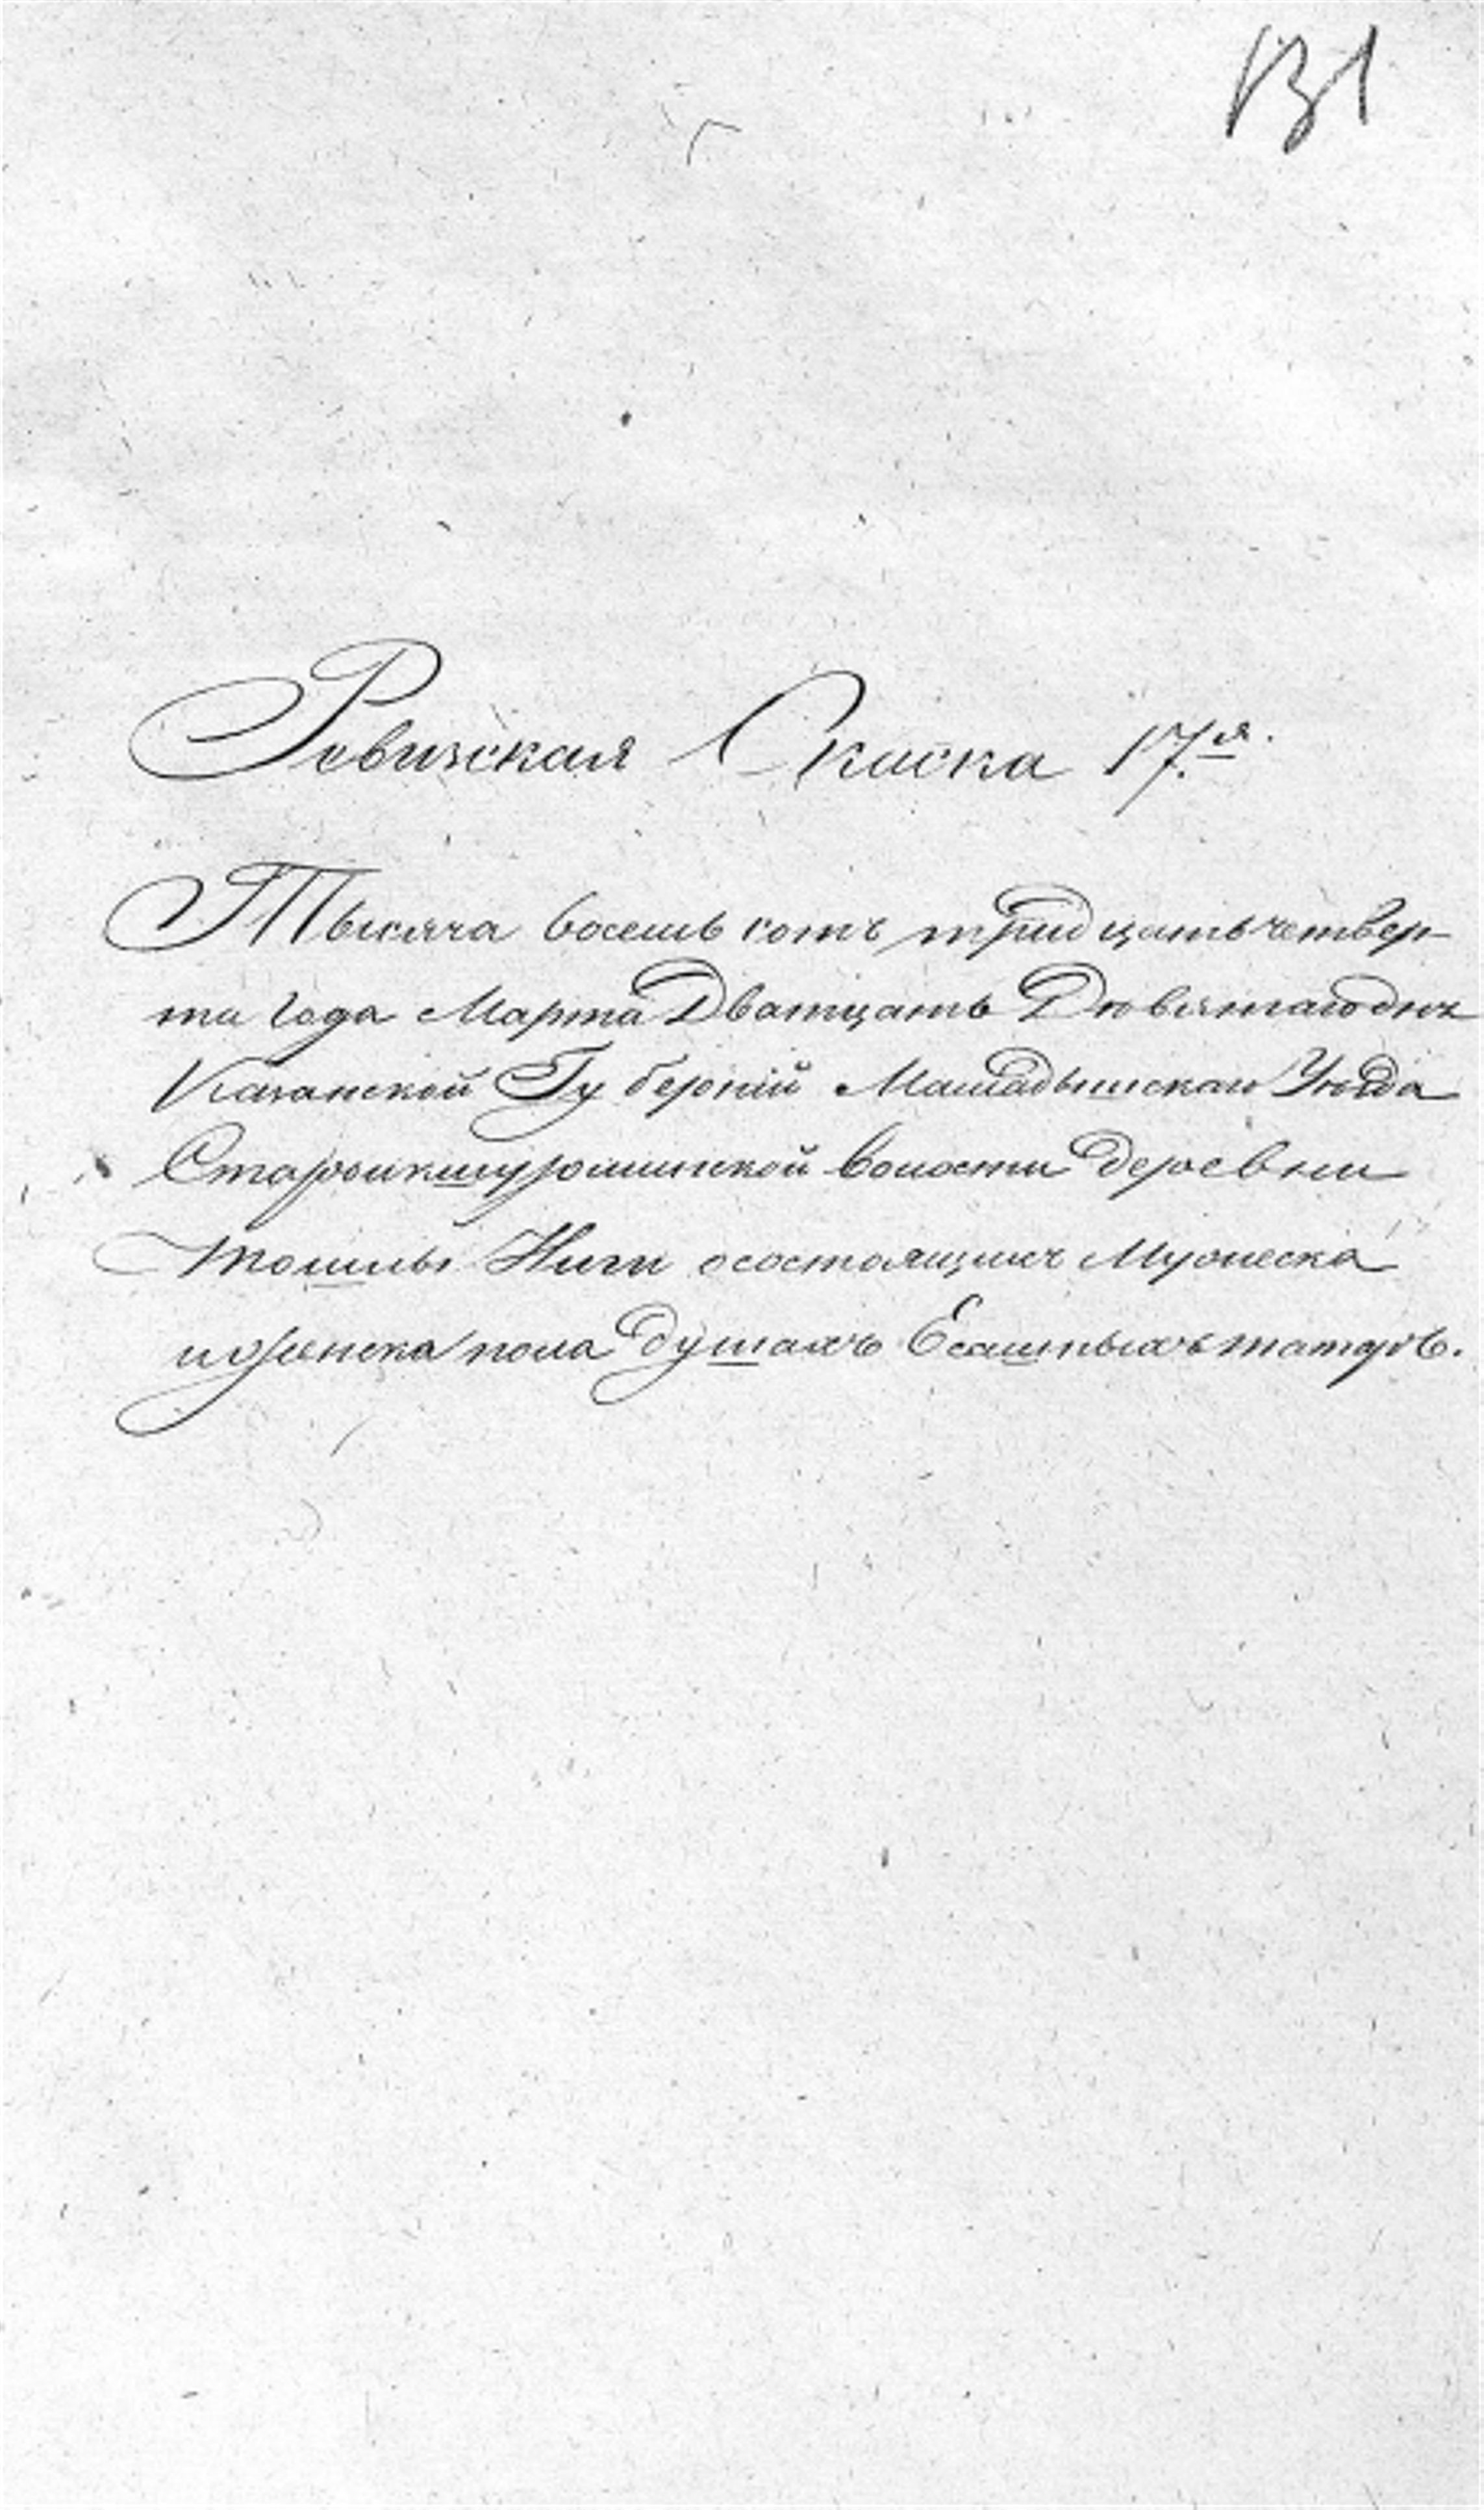 131
Ревизская Скаска 17.я.
Тысяча восемь сотъ тридцать четвер-
та года Марта Дватцать Девятаго дня
Казанской Губерніи Мамадышскаго Уезда
Староикшурминской волости деревни
осостоящихъ Мужеска
и женска пола душахъ Есашныхъ татаръ.